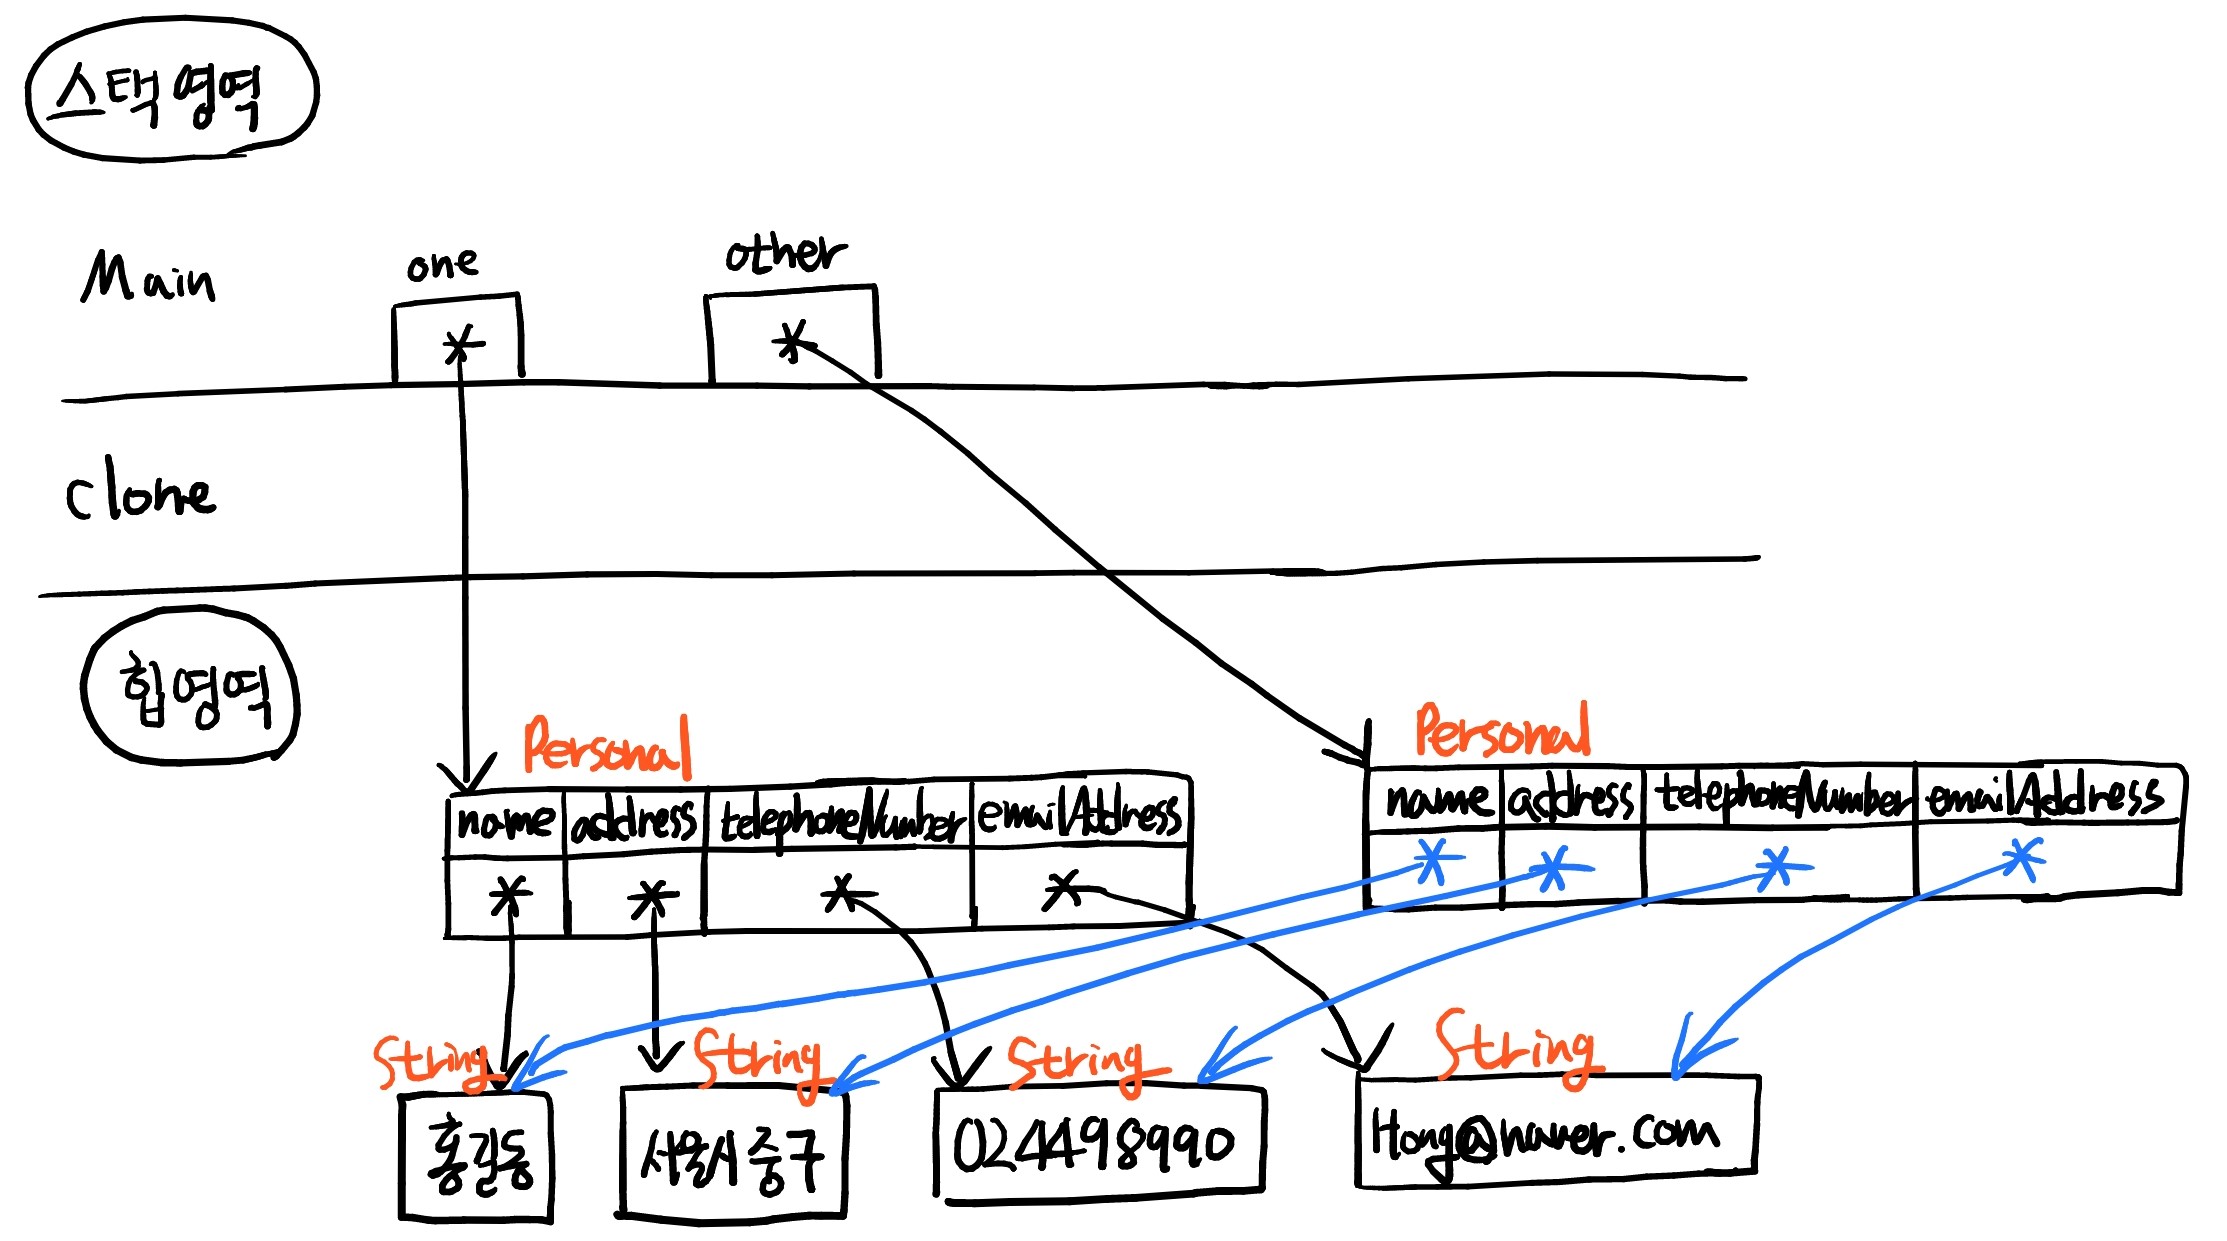 스택 영역
Main
one
other
clone
힙 영역
Personal
name address telephoneNumber emailAddress
Personal
name address telephoneNumber emailAddress
String
홍길동
String
서울시 중구
String
024498990
String
Hong@naver.com